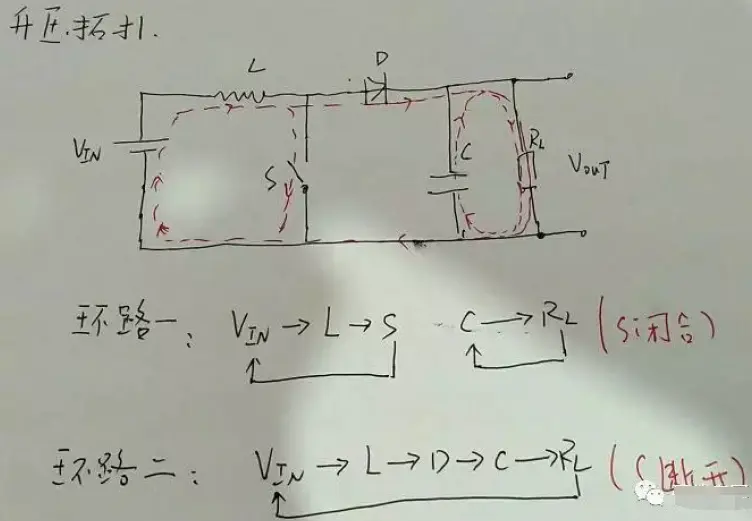 升压拓扑.
L D
VIN S C RL VOUT
环路一: VIN → L → S C → RL (S闭合)
环路二: VIN → L → D → C → RL (S断开)